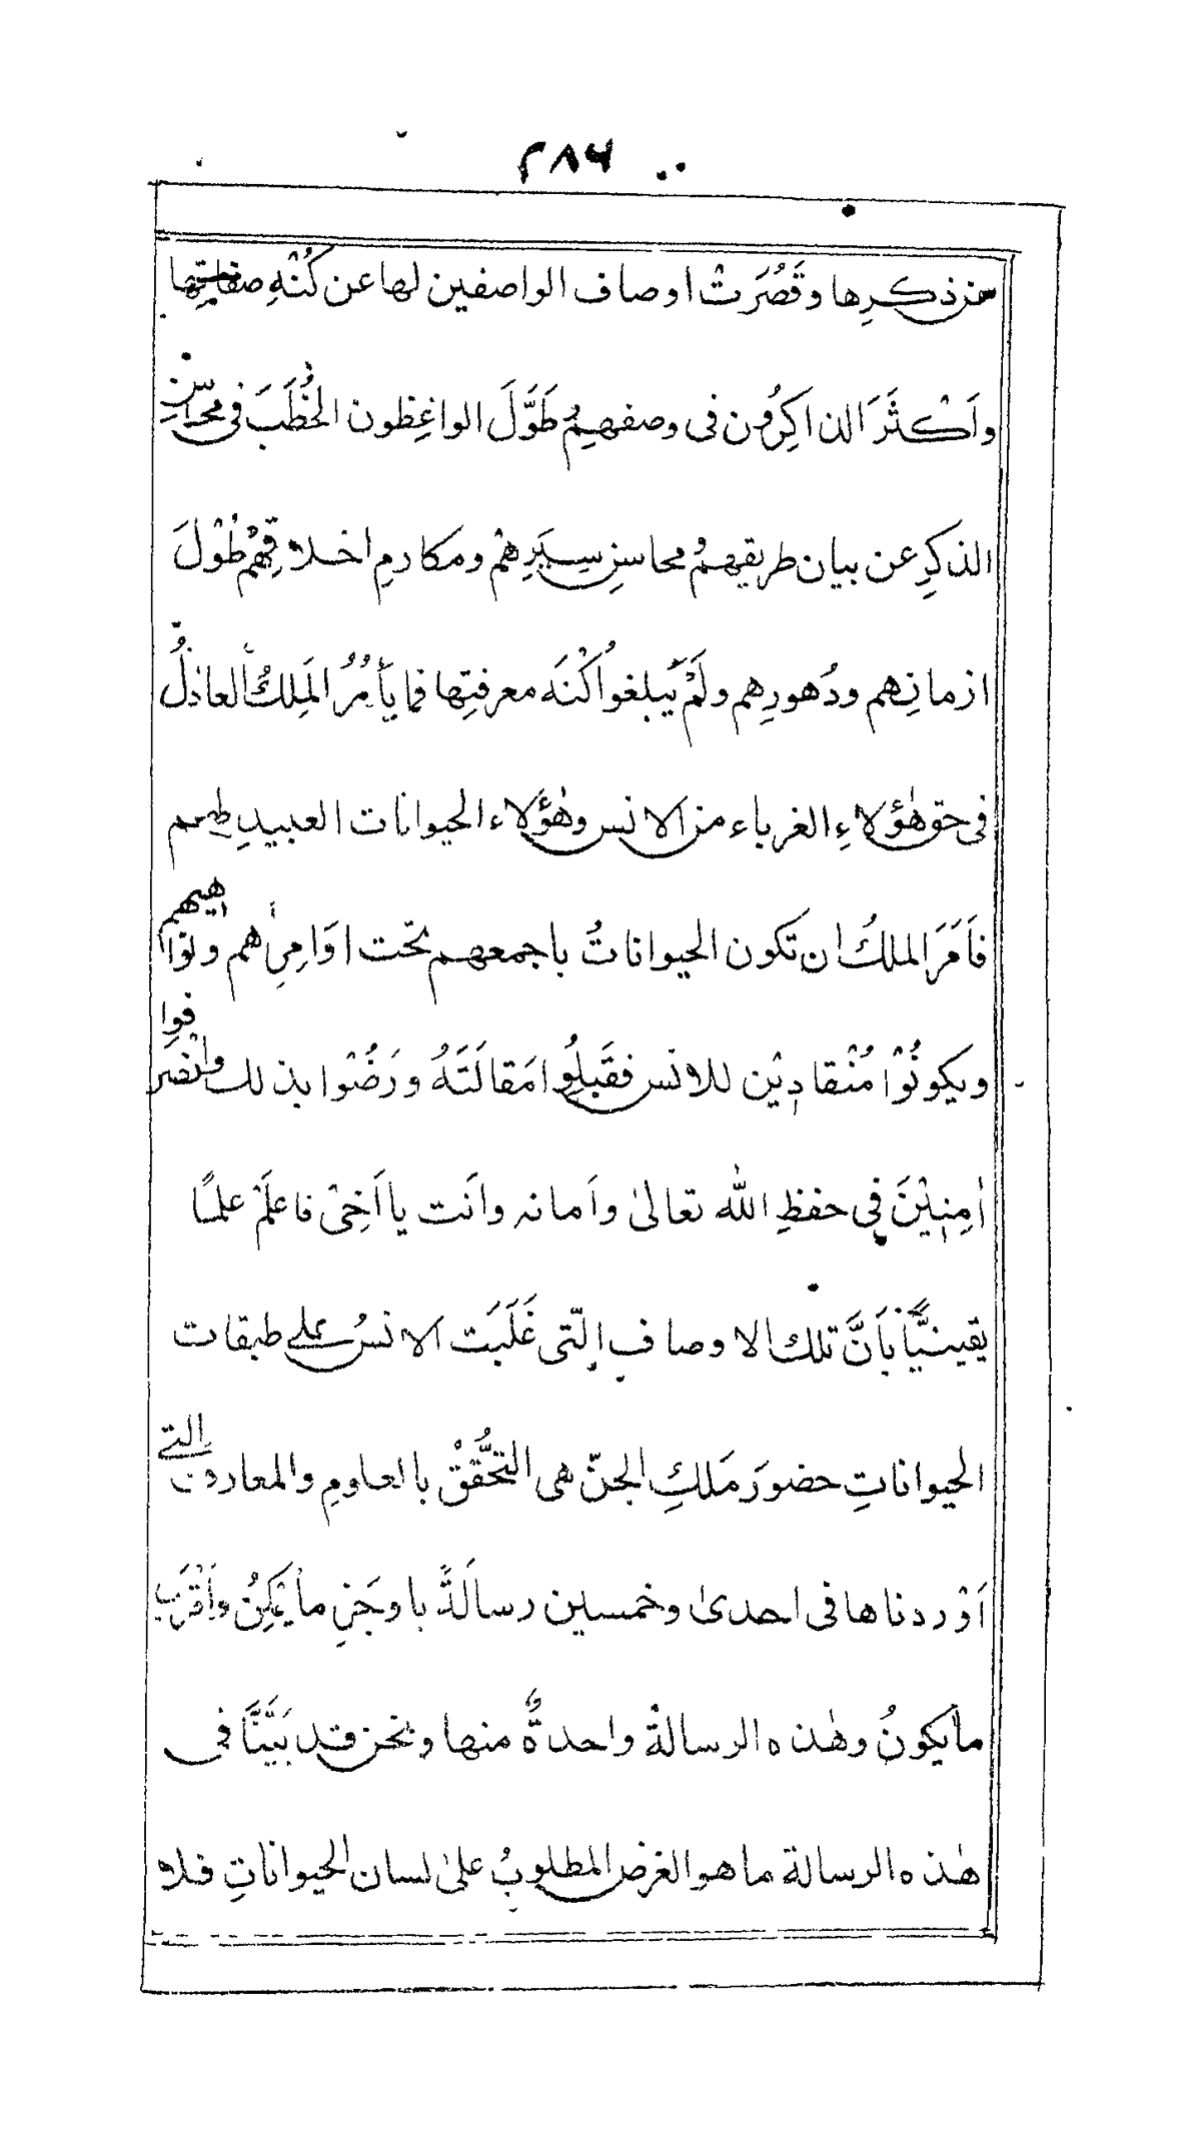 ۲۸۶
من ذكرِها وقَصُرَتْ اوصاف الواصفين لها عن كُنْهِ صفاتِها
واَكْثَرَ الذاكِرُون فى وصفهِمْ طَوَّلَ الواعِظون الخُطَبَ فى محاسِنِ
الذكرِ عن بيان طريقهمْ ومحاسنِ سِيَرِهمْ ومكارمِ اخلاقِهِمْ طُوْلَ
ازمانِهم ودُهورِهم ولَمْ يَبلغوا كُنْهَ معرفتِها فما يأمُرُ المَلِكُ العادلُ
فى حق هٰؤلاءِ الغرباء من الانس وهٰؤلاء الحيوانات العبيدِ لهم
فاَمَرَ الملكُ ان تكون الحيواناتُ باجمعهم تحت اوَامِرِهم ونواهيهم
ويكونُوْا مُنْقادِيْن للانس فقَبِلُوا مَقالَتَهُ ورَضُوْا بذلك وانْصَرفوا
اٰمِنِيْنَ فى حفظِ اللّٰه تعالىٰ واَمانه وانت يا اَخِىْ فاعلَمْ علمًا
يقينيًّا بَاَنَّ تلك الاوصافِ الّتى غَلَبَت الانسُ على طبقات
الحيواناتِ حضورَ مَلكِ الجنّ هى التحَّقُقْ بالعلومِ والمعارف التى
اَوْردناها فى احدىٰ وخمسين رسالَةً باوجَزِ ما يُمْكِنُ واَقْرَبِ
ما يكونُ وهٰذه الرسالةُ واحدةٌ منها ونحن قد بَيَّنَّا فى
هٰذه الرسالة ما هو الغرض المطلوبُ علىٰ لسان الحيواناتِ فلا